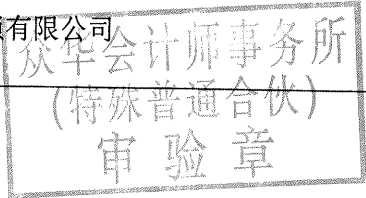 有限公司
众华会计师事务所
(特殊普通合伙)
审验章